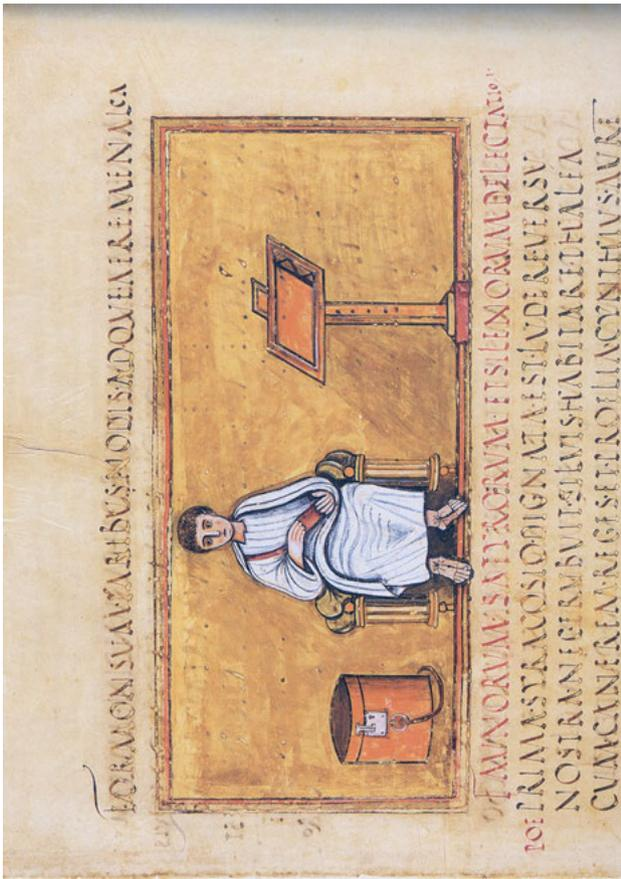 FORMONSVM PARIBVS NODIS ADQVE AERE MENALCA
FAVNORVM SATYRORVM ET SILENORVM DELECTATIO
POE PRIMA SYRACOSIO DIGNATA EST LVDERE VERSV
NOSTRA NEC ERVBVIT SILVIS HABITARE THALEA
CVM CANEREM REGES ET PROELIA CYNTHIVS AVRE